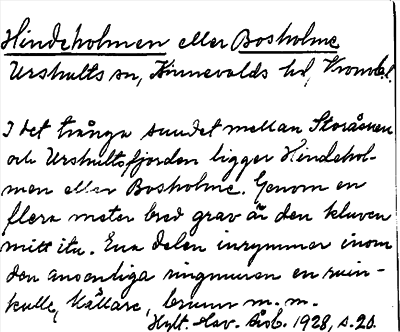 Hindeholmen eller Bosholme
Urshults sn, Kinnevalds hd, Kronobl.
I det trånga sundet mellan Storåsnen
och Urshultsfjorden ligger Hindehol-
men eller Bosholme. Genom en
flera meter bred grav är den kluven
mitt itu. Ena delen inrymmer inom
den ansenliga ringmuren en ruin-
kulle, källare, brunn m.m.
Hylt.-Cav. Årsb. 1928, s.20.